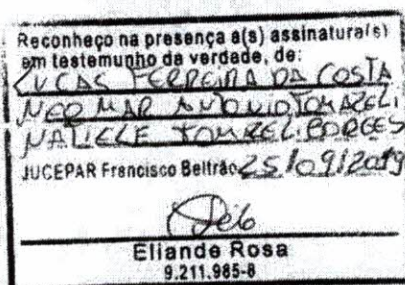 Reconheço na presença a(s) assinatura(s)
em testemunho da verdade, de:
LUCAS FERREIRA DA COSTA
NERMAR ANTONIO TOMAZELI
NATIELE TOMAZELI BORGES
JUCEPAR Francisco Beltrão 25/09/2019
Eliande Rosa
9.211.985-8